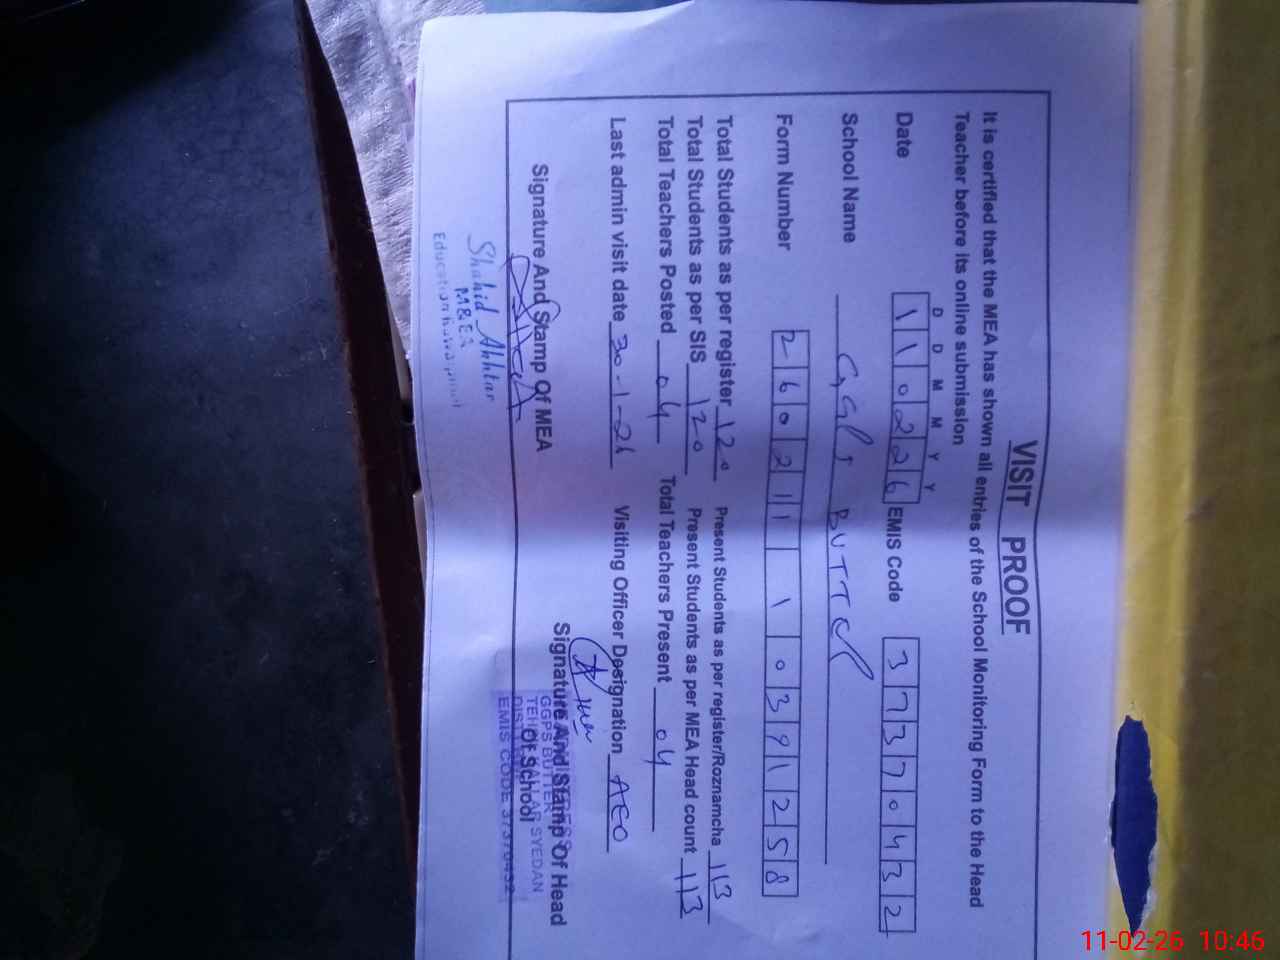 VISIT PROOF
It is certified that the MEA has shown all entries of the School Monitoring Form to the Head
Teacher before its online submission
D D M M Y Y
Date 110226 EMIS Code 37370432
School Name GGPS BUTTER
Form Number 260211 1 0391258
Total Students as per register 120 Present Students as per register/Roznamcha 113
Total Students as per SIS 120 Present Students as per MEA Head count 113
Total Teachers Posted 04 Total Teachers Present 04
Last admin visit date 30-1-26 Visiting Officer Designation AEO
Signature And Stamp Of MEA Signature And Stamp Of Head
Of School
Shahid Akhtar
M&EA
Education
GGPS BUTTER
TEH KALLAR SYEDAN
EMIS CODE 37370432
11-02-26 10:46